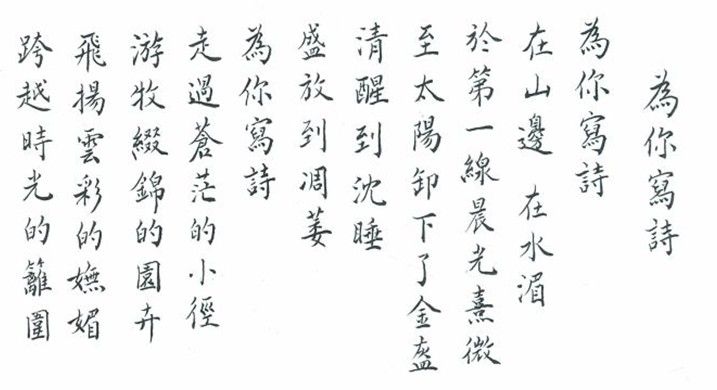 為你寫詩
為你寫詩
在山邊 在水湄
於第一線晨光熹微
至太陽卸下了金盔
清醒到沈睡
盛放到凋萎
為你寫詩
走過蒼茫的小徑
游牧綴錦的園卉
飛揚雲彩的嫵媚
跨越時光的籬圍